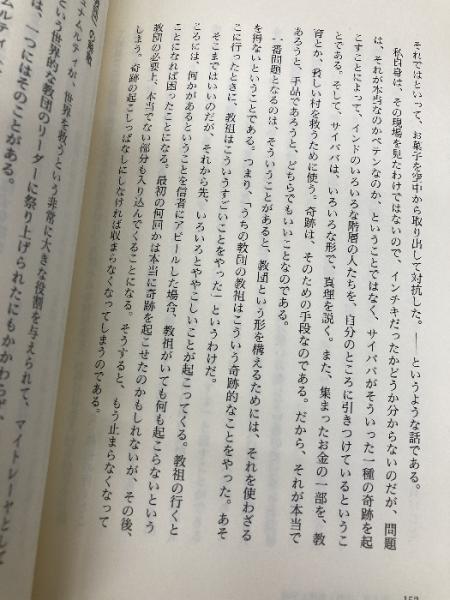 それではといって、お菓子を空中から取り出して対抗した。――というような話である。
私自身は、その現場を見たわけではないので、インチキだったかどうか分からないのだが、問題
は、それが本当なのかペテンなのか、ということではなく、サイババがそういった一種の奇跡を起
こすことによって、インドのいろいろな階層の人たちを、自分のところに引きつけているというこ
とである。そして、サイババは、いろいろな形で、真理を説く。また、集まったお金の一部を、教
育とか、貧しい村を救うために使う。奇跡は、そのための手段なのである。だから、それが本当で
あろうと、手品であろうと、どちらでもいいことなのである。
一番問題となるのは、そういうことがあると、教団という形を構えるためには、それを使わざる
を得ないということである。つまり、「うちの教団の教祖はこういう奇跡的なことをやった。あそ
こに行ったときに、教祖はこういうすごいことをやった」というわけだ。
そこまではいいのだが、それから先、いろいろとややこしいことが起こってくる。教祖の行くと
ころには、何かがあるということを信者にアピールした場合、教祖がいても何も起こらないという
ことになれば困ったことになる。最初の何回かは本当に奇跡を起こせたのかもしれないが、その後、
教団の必要上、本当でない部分も入り込んでくることになる。そうすると、もう止まらなくなって
しまう。奇跡の起こしっぱなしにしなければ収まらなくなってしまうのである。
の挑戦
ュナムルティが、世界を救うという非常に大きな役割を与えられて、マイトレーヤとして
という世界的な教団のリーダーに祭り上げられたにもかかわらず、
は、一つにはそのことがある。
ムルティ